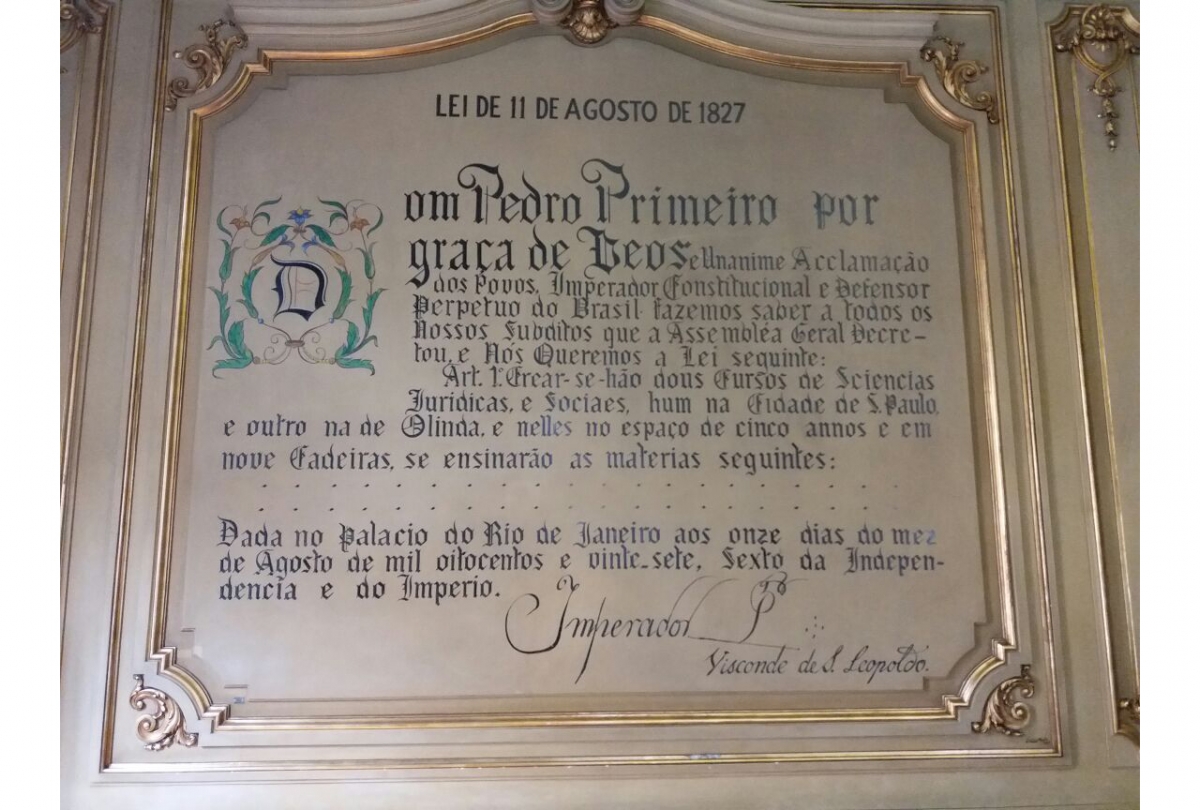 LEI DE 11 DE AGOSTO DE 1827
Dom Pedro Primeiro por
graça de Deos e Unanime Acclamação
dos Povos, Imperador Constitucional e Defensor
Perpetuo do Brasil fazemos saber a todos os
Nossos Subditos que a Assembléa Geral Decre-
tou, e Nós Queremos a Lei seguinte:
Art. 1º Crear-se-hão dous Cursos de Sciencias
Juridicas, e Sociaes, hum na Cidade de S. Paulo,
e outro na de Olinda, e nelles no espaço de cinco annos e em
nove Cadeiras, se ensinarão as materias seguintes:
. . . . . . . . . . . . . . . . . . . . . . . .
. . . . . . . . . . . . . . . . . . . . . . . .
Dada no Palacio do Rio de Janeiro aos onze dias do mez
de Agosto de mil oitocentos e vinte-sete, Sexto da Indepen-
dencia e do Imperio.
Imperador P
Visconde de S. Leopoldo.